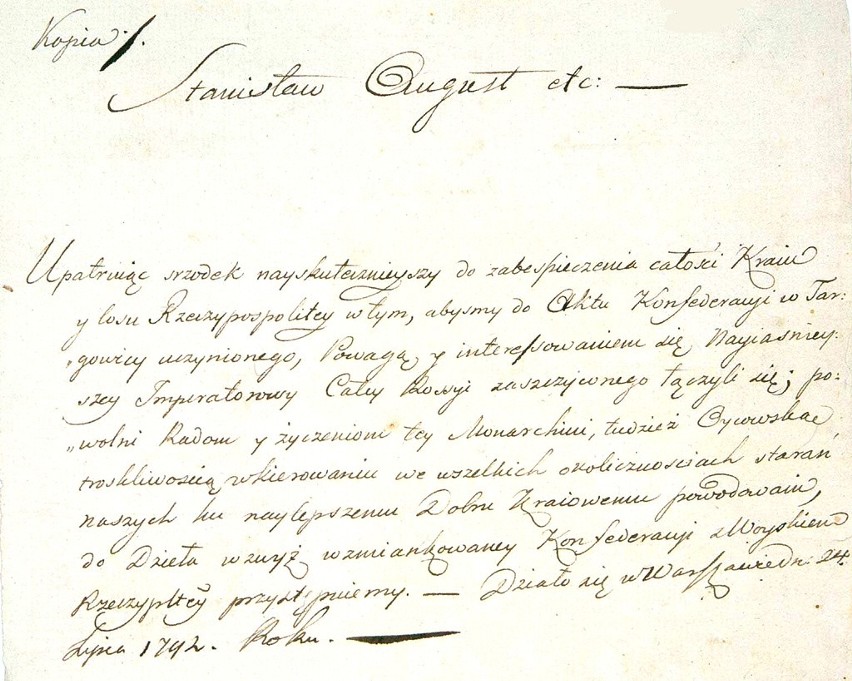 Kopia /.
Stanisław August etc: —
Upatruiąc srzodek nayskutecznieyszy do zabespieczenia całości Kraiu
y losu Rzeczypospolitey w tym, abysmy do Aktu Konfederacyi w Tar:
„gowicy uczynionego, Powagą y interessowaniem się Nayiasniey:
szey Imperatorowy Całey Rossyi zaszczyconego łączyli się; po:
„wolni Radom y życzeniom tey Monarchini, tudzież Oycowską
troskliwoscią w kierowaniu we wszelkich okolicznosciach starań
naszych ku naylepszemu Dobru Kraiowemu powodowani,
do Dzieła wzwyż wzmiankowaney Konfederacyi z Woyskiem
Rzeczypltey przystępuiemy. — Działo się w Warszawie dn. 24.
Lipca 1792. Roku. —